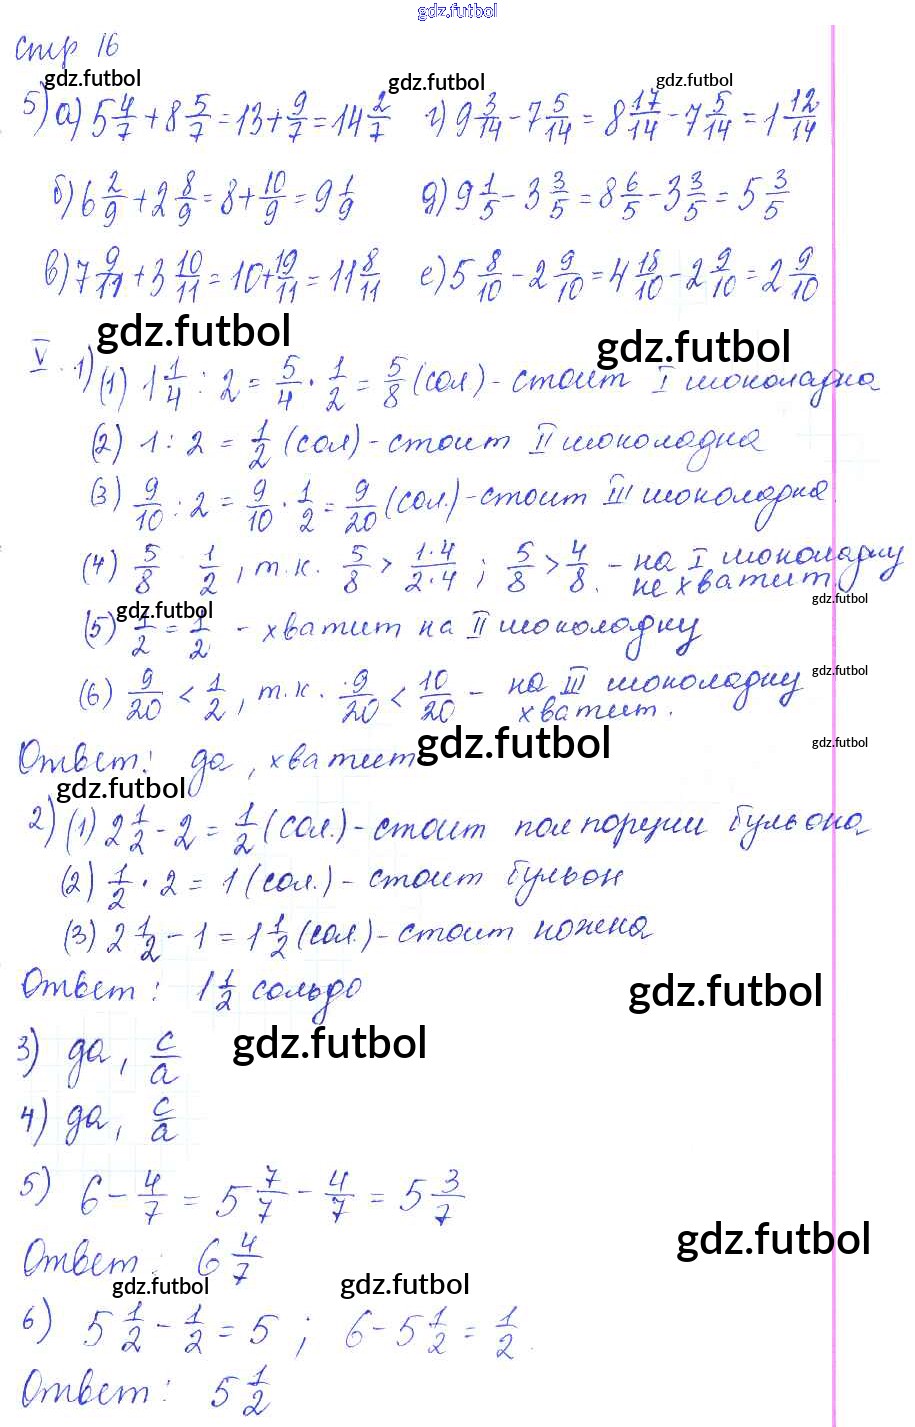 gdz.futbol
стр 16
gdz.futbol gdz.futbol gdz.futbol
5) а) 5 4/7 + 8 5/7 = 13 + 9/7 = 14 2/7 г) 9 3/14 - 7 5/14 = 8 17/14 - 7 5/14 = 1 12/14
б) 6 2/9 + 2 8/9 = 8 + 10/9 = 9 1/9 д) 9 1/5 - 3 3/5 = 8 6/5 - 3 3/5 = 5 3/5
в) 7 9/11 + 3 10/11 = 10 + 19/11 = 11 8/11 е) 5 8/10 - 2 9/10 = 4 18/10 - 2 9/10 = 2 9/10
gdz.futbol gdz.futbol
V. 1) (1) 1 1/4 : 2 = 5/4 · 1/2 = 5/8 (сол) - стоит I шоколадка
(2) 1 : 2 = 1/2 (сол) - стоит II шоколадка
(3) 9/10 : 2 = 9/10 · 1/2 = 9/20 (сол.) - стоит III шоколадка
(4) 5/8 1/2, т.к. 5/8 > 1·4/2·4 ; 5/8 > 4/8. - на I шоколадку
не хватит.
gdz.futbol gdz.futbol
(5) 1/2 = 1/2 - хватит на II шоколадку
(6) 9/20 < 1/2, т.к. 9/20 < 10/20 - на III шоколадку
хватит.
gdz.futbol
Ответ: да, хватит
gdz.futbol gdz.futbol
gdz.futbol
2) (1) 2 1/2 - 2 = 1/2 (сол.) - стоит пол порции бульона
(2) 1/2 · 2 = 1 (сол.) - стоит бульон
(3) 2 1/2 - 1 = 1 1/2 (сол.) - стоит ножка
Ответ: 1 1/2 сольдо
gdz.futbol
gdz.futbol
3) да, c/a
4) да, c/a
5) 6 - 4/7 = 5 7/7 - 4/7 = 5 3/7
gdz.futbol
Ответ: 6 4/7
gdz.futbol gdz.futbol
6) 5 1/2 - 1/2 = 5 ; 6 - 5 1/2 = 1/2.
Ответ: 5 1/2